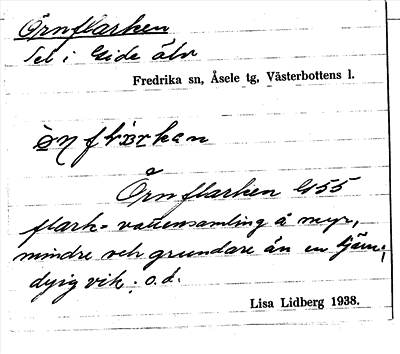 Örnflarken
Sel i Gide älv
Fredrika sn, Åsele tg, Västerbottens l.
Örnflarken G55
flark = vattensamling å myr,
mindre och grundare än en tjärn;
dyig vik. o.d.
Lisa Lidberg 1938.